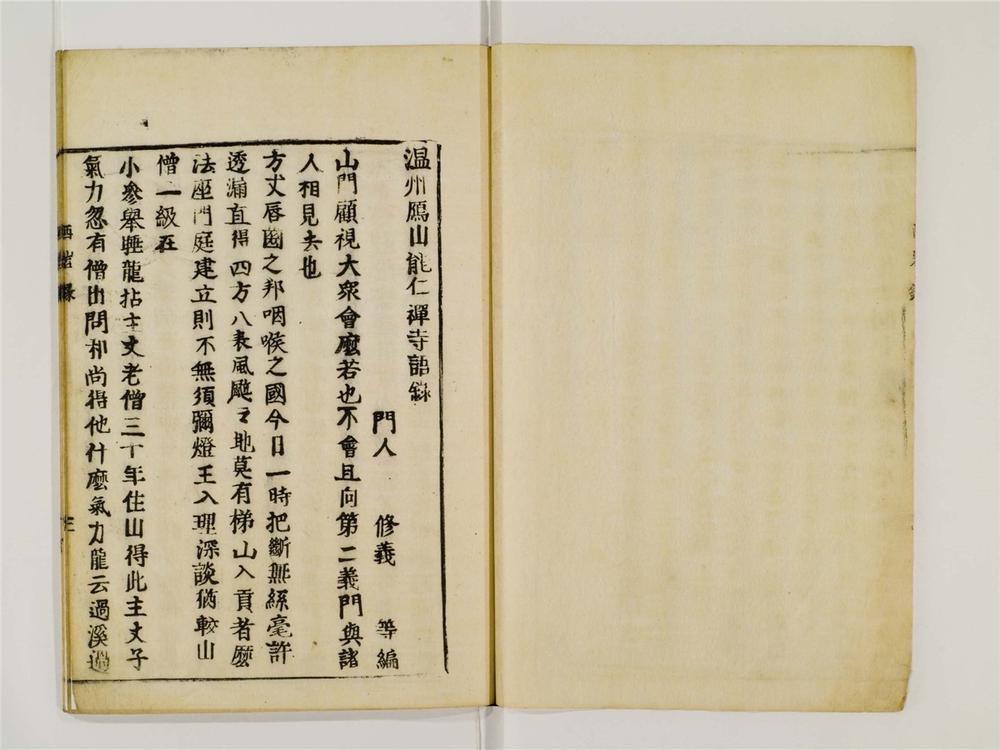 温州鴈山能仁禪寺語錄
門人 修義 等編
山門顧視大衆會麼若也不會且向第二義門與諸
人相見去也
方丈唇齒之邦咽喉之國今日一時把斷無絲毫許
透漏直得四方八表風颯々地莫有梯山入貢者麼
法座門庭建立則不無須彌燈王入理深談猶較山
僧一級在
小參舉龍拈主丈老僧三十年住山得此主丈子
氣力忽有僧出問和尚得他什麼氣力龍云過溪過
錄